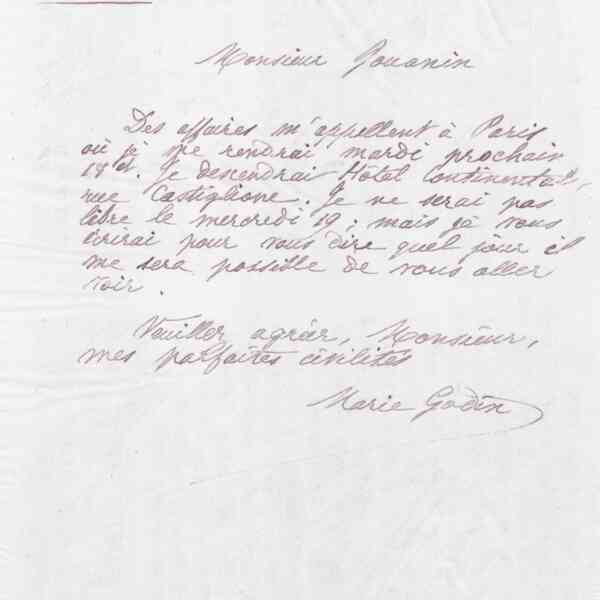 Monsieur Gouanin
Des affaires m'appellent à Paris
où je me rendrai mardi prochain
18 ct. Je descendrai Hôtel Continental,
rue Castiglione. Je ne serai pas
libre le mercredi 19 ; mais je vous
écrirai pour vous dire quel jour il
me sera possible de vous aller
voir.
Veuillez agréer, Monsieur,
mes parfaites civilités
Marie Godin